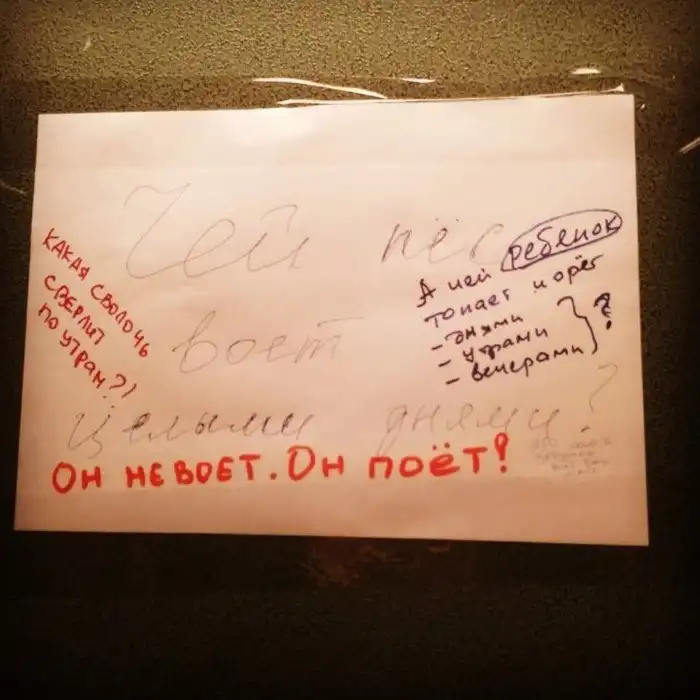 Чей пёс
воет
целыми днями?
КАКАЯ СВОЛОЧЬ
СВЕРЛИТ
ПО УТРАМ?!
А чей ребенок
топает и орёт
- днями
- утрами
- вечерами
?
ОН НЕ ВОЕТ. ОН ПОЁТ!